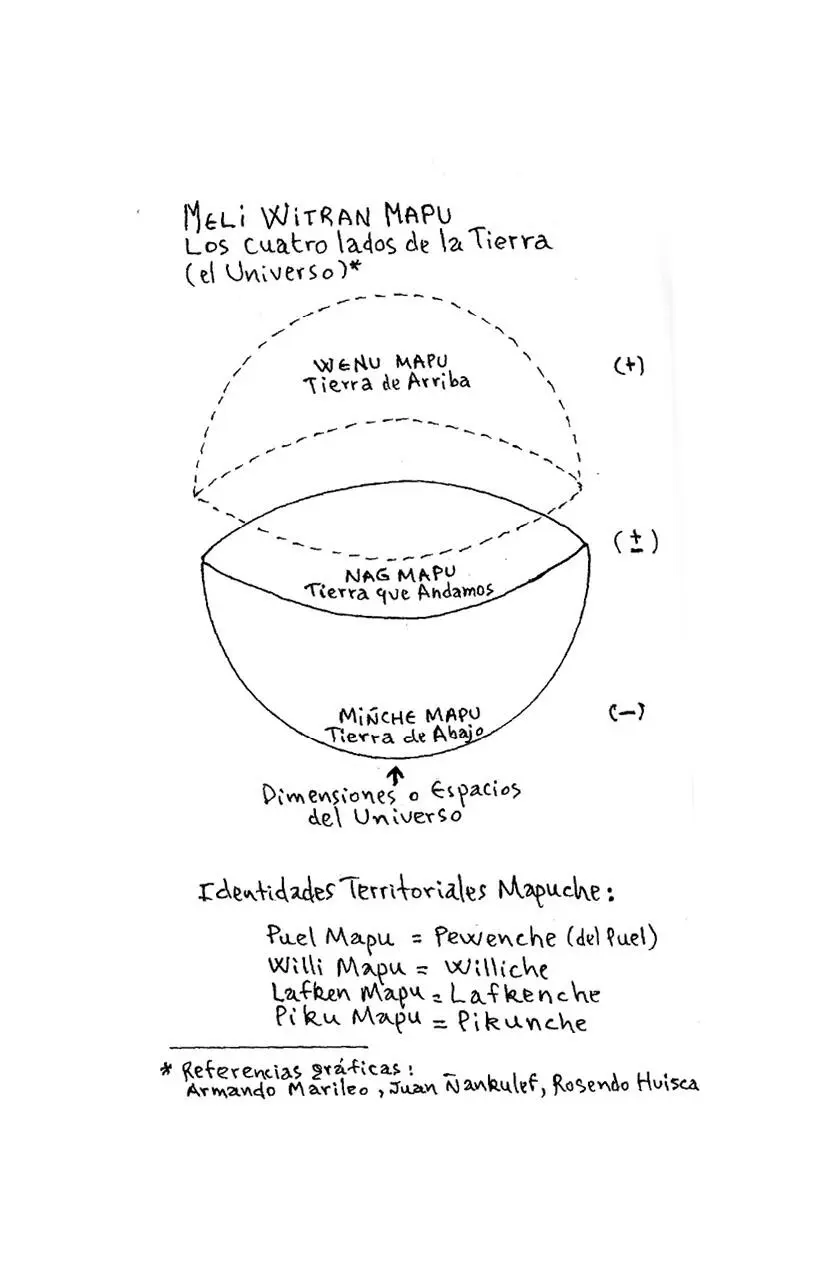 MELI WITRAN MAPU
Los cuatro lados de la Tierra
(el Universo)*
WENU MAPU
Tierra de Arriba
(+)
(±)
NAG MAPU
Tierra que Andamos
MIÑCHE MAPU
Tierra de Abajo
(−)
Dimensiones o Espacios
del Universo
Identidades Territoriales Mapuche:
Puel Mapu = Pewenche (del Puel)
Willi Mapu = Williche
Lafken Mapu = Lafkenche
Piku Mapu = Pikunche
* Referencias gráficas:
Armando Marileo, Juan Ñankulef, Rosendo Huisca